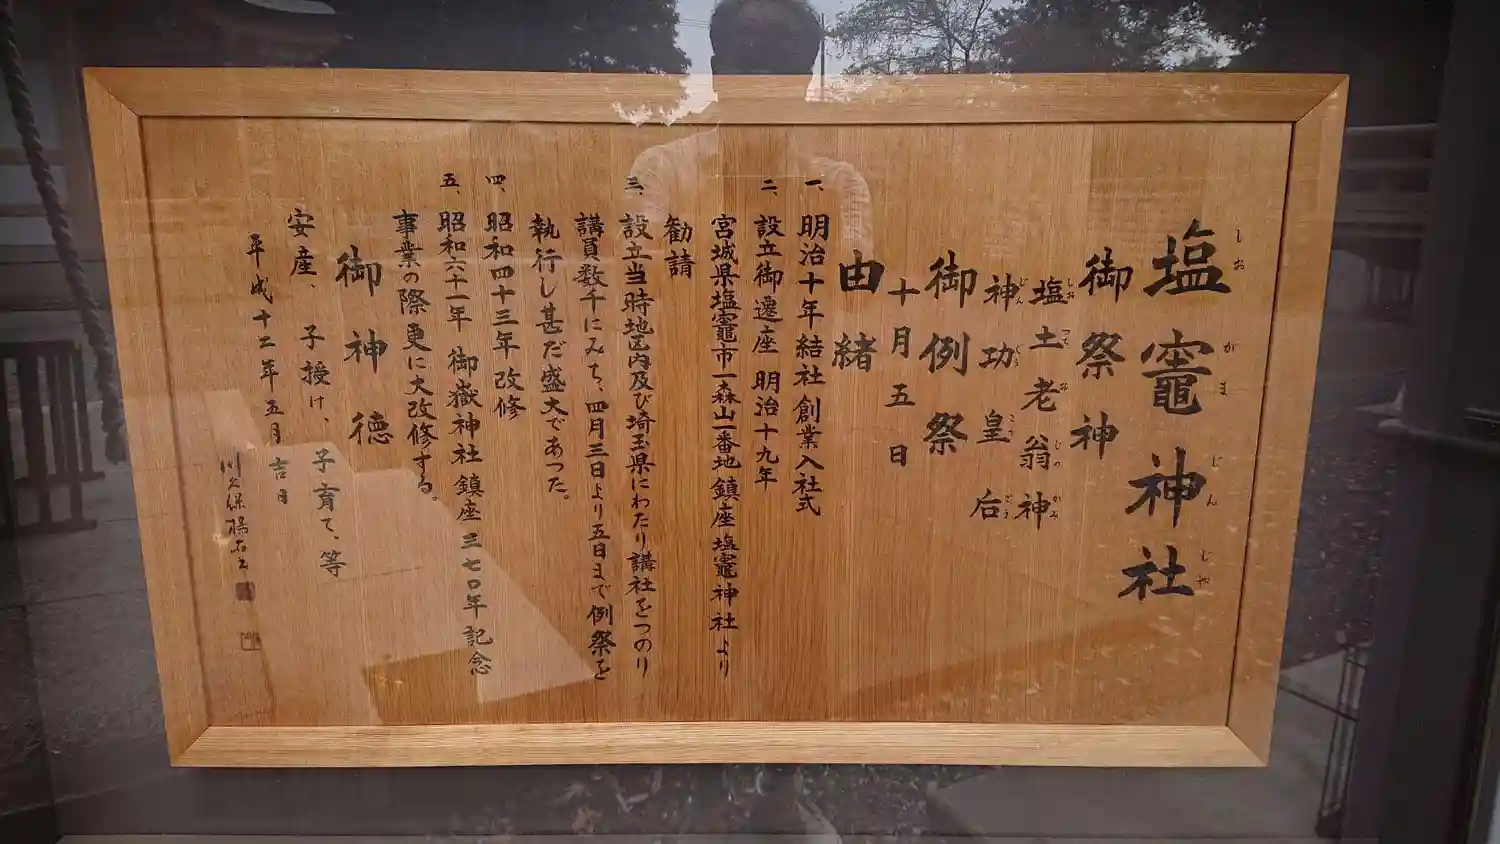 塩竈神社
しおがまじんじゃ
御祭神
塩土老翁神
しおつちおじのかみ
神功皇后
じんぐうこうごう
御例祭
十月五日
由緒
一、明治十年結社創業入社式
二、設立御遷座 明治十九年
宮城県塩竈市一森山一番地鎮座塩竈神社より
勧請
三、設立当時地区内及び埼玉県にわたり講社をつのり
講員数千にみち、四月三日より五日まで例祭を
執行し甚だ盛大であった。
四、昭和四十三年改修
五、昭和六十一年 御嶽神社鎮座三七〇年記念
事業の際更に大改修する。
御神徳
安産、子授け、子育て、等
平成十二年五月吉日